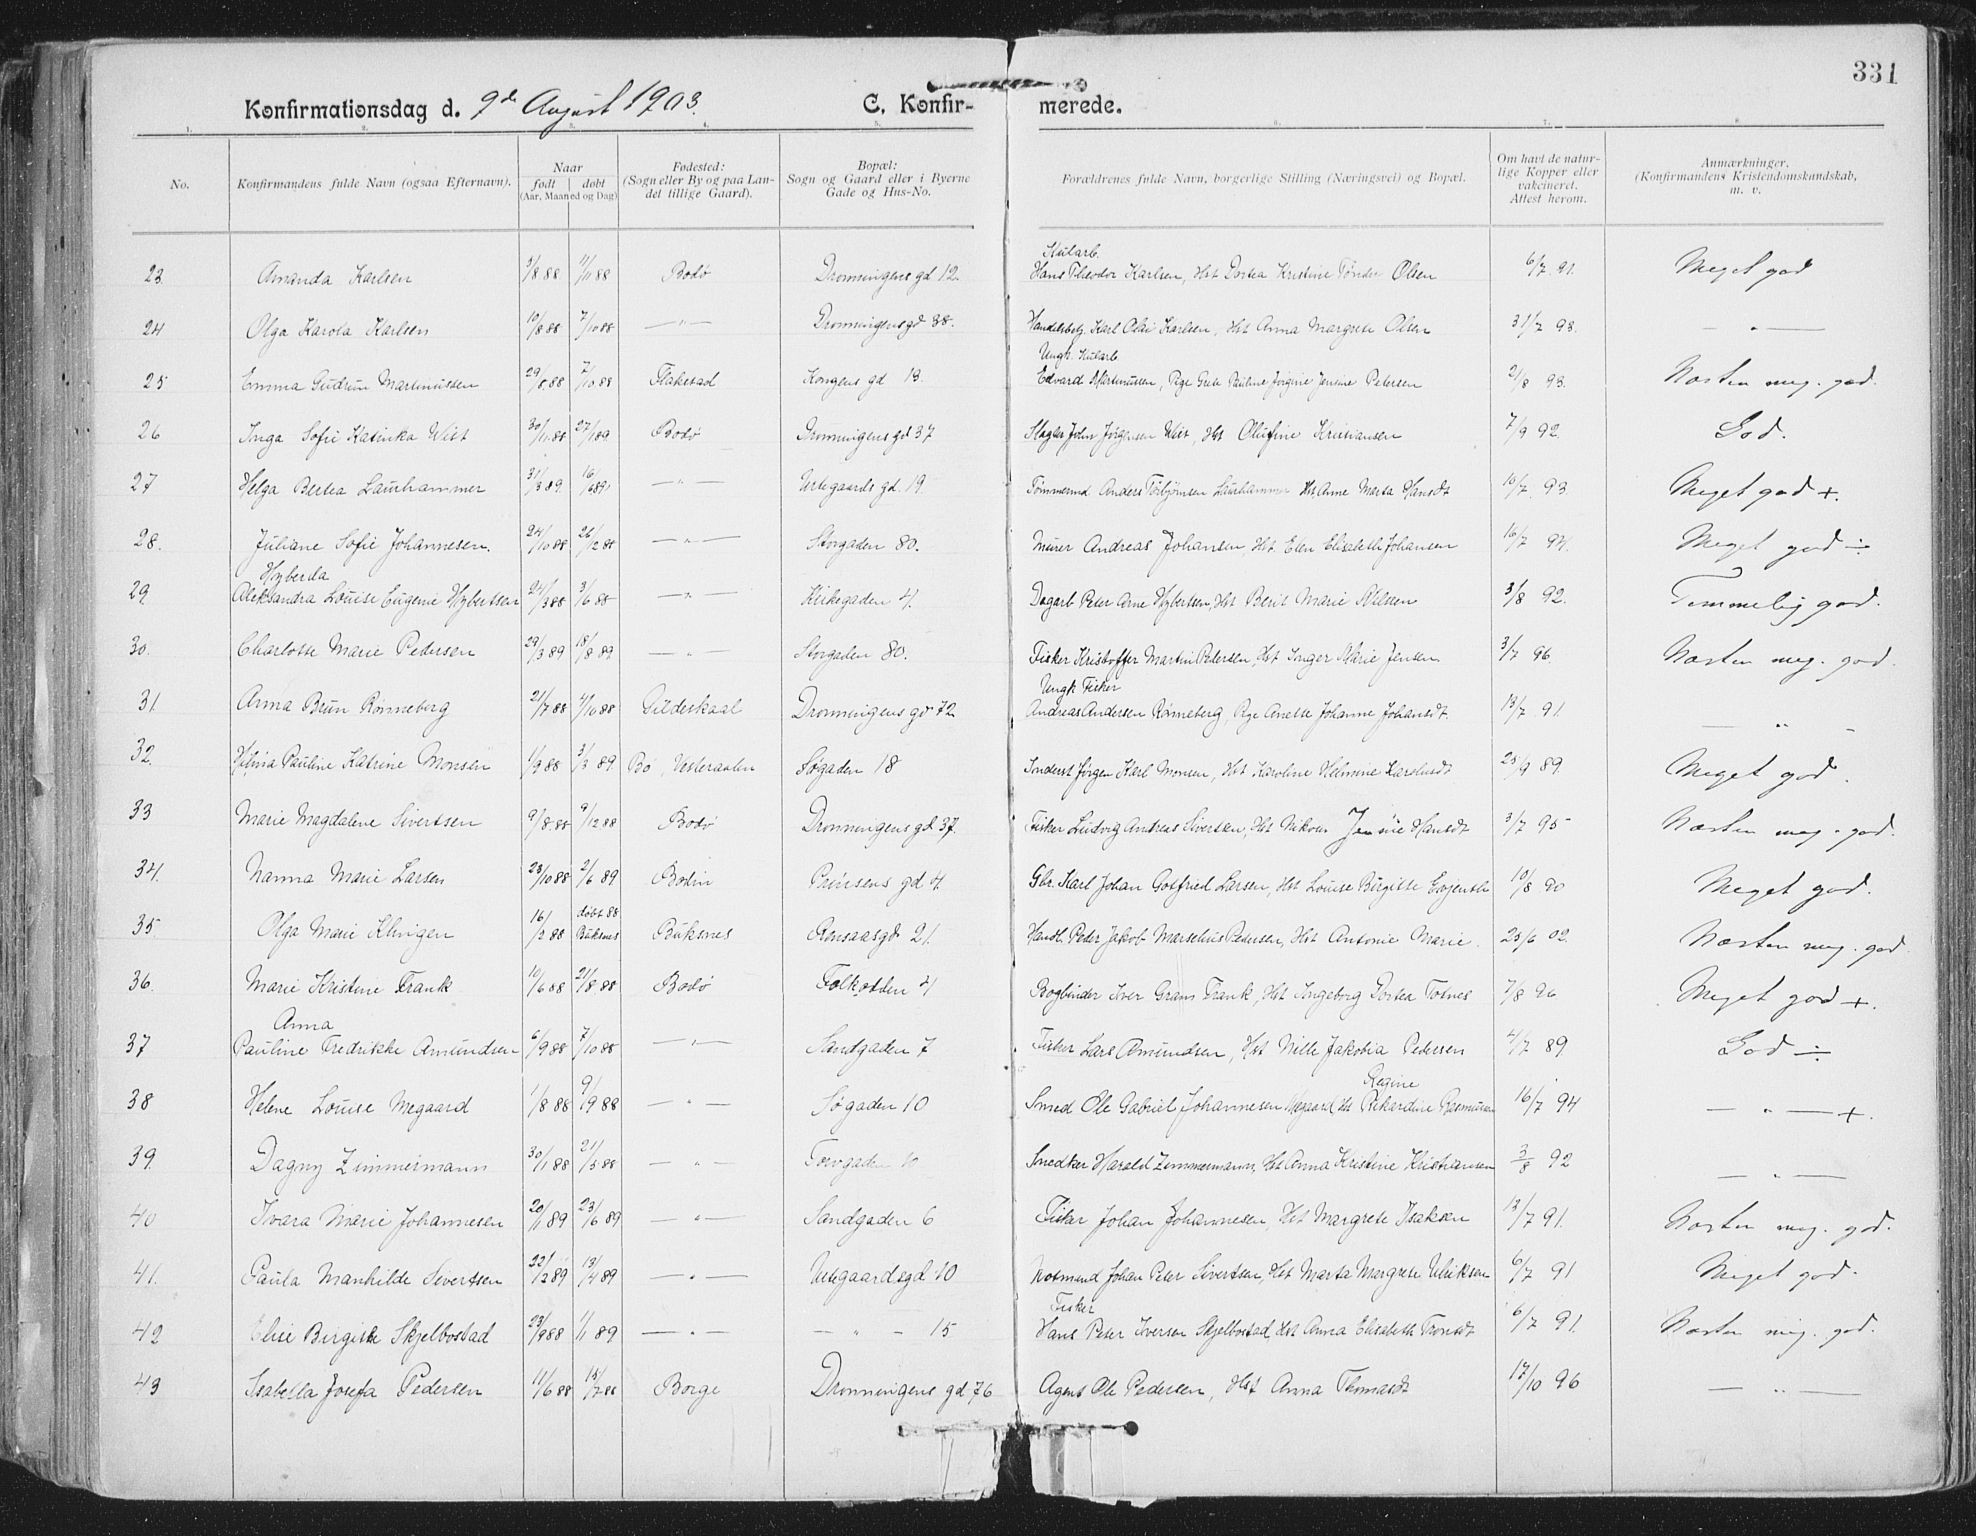 331
Konfirmationsdag d. 9de August 1903. C. Konfir- merede.
1. 2. 3. 4. 5. 6. 7. 8.
No. Konfirmandens fulde Navn (ogsaa Efternavn). Naar født døbt (Aar, Maaned og Dag) Fødested: (Sogn eller By og paa Landet tillige Gaard). Bopæl: Sogn og Gaard eller i Byerne Gade og Hus-No. Forældrenes fulde Navn, borgerlige Stilling (Næringsvei) og Bopæl. Om havt de naturlige Kopper eller vakcineret. Attest herom. Anmærkninger. (Konfirmandens Kristendomskundskab, m. v.
23. Amanda Karlsen 3/8 88 11/11 88 Bodø Dronningens gd 12. Kularb. Hans Theodor Karlsen, Hst Dortea Kristine Tønder Olsen 6/7 91. Meget god
24 Olga Karola Karlsen 10/8 88 7/10 88 — " — Dronningens gd 38. Handelsbetj. Karl Olai Karlsen, Hst Anna Margrete Olsen 31/7 93. — " —
25 Emma Gudrun Martinussen 29/8 88 7/10 88 Flakstad Kongens gd 13. Ungk. Kularb Edvard Martinussen, Pige Grete Pauline Jørgine Jensine Petersen 2/8 93. Næsten meg. god.
26 Inga Sofie Katinka Wist 30/11 88 27/1 89 Bodø Dronningens gd 37 Slagter John Jørgensen Wist, Hst Olufine Kristiansen 7/9 92. God.
27 Helga Bertea Laurhammer 31/3 89. 16/6 89 — " — Urtegaards gd. 19. Tømmermd. Anders Torbjørnsen Laurhammer Hst Anne Marta Hansdt 10/7 93 Meget god +.
28. Juliane Sofie Johannesen. 24/10 88 26/12 88 — " — Storgaden 80. Murer Andreas Johansen, Hst Elen Elisabeth Johansen 16/7 94. Meget god ÷
29 Hyberda Aleksandra Louise Eugenie Hybertsen 24/3 88 3/6 88 — " — Kirkegaden 4. Dagarb Peter Arne Hybertsen, Hst Berit Marie Nilsen 3/8 92. Temmelig god.
30. Charlotte Marie Pedersen 29/3 89 18/8 89 — " — Storgaden 80. Fisker Kristoffer Martin Pedersen, Hst Inger Marie Jensen 3/7 96. Næsten meg. god.
31. Anna Brun Rønneberg 21/7 88 4/10 88 Gildeskaal Dronningens gd 72 Ungk Fisker Andreas Andersen Rønneberg, Pige Anette Johanne Johansdt. 13/7 91. — " —
32. Helmia Pauline Katrine Monsen 1/9 88 3/3 89 Bø, Vesteraalen Søgaden 18 Jørgen Karl Monsen, Hst Karoline Helmine Karolusdt 25/9 89. Meget god.
33 Marie Magdalene Sivertsen 9/8 88 9/12 88 Bodø Dronningens gd 37. Fisker Ludvig Andreas Sivertsen, Hst Jensine Hansdt 3/7 95 Næsten meg. god.
34. Nanna Marie Larsen 23/10 88 2/6 89 Bodin Prinsens gd 4. Gbr. Karl Johan Gotfried Larsen, Hst Louise Birgitte 10/8 90 Meget god.
35 Olga Marie Klingen 16/2 88 døbt 88 Buksnes Buksnes Rønsaasgd 21. Handl. Peder Jakob Marselius Pedersen, Hst Antonie Marie. 25/6 02. Næsten meg. god
36. Marie Kristine Frank 10/6 88 21/8 88 Bodø Folkodden 4 Bogbinder Iver Grams Frank, Hst Ingeborg Dortea Tofnes 7/8 96 Meget god +.
37 Anna Pauline Fredrikke Amundsen 6/9 88 7/10 88 — " — Sandgaden 7 Fisker Lars Amundsen, Hst Nille Jakobia Pedersen 4/7 89 God ÷
38 Helene Louise Megaard 1/8 88 9/9 88 — " — Søgaden 10 Smed Ole Gabriel Johannesen Megaard, Hst Regine Rikardine Rasmussen 16/7 94 — " — +.
39. Dagny Zimmermann 30/1 88 21/5 88 — " — Torvgaden 10 Snedker Harald Zimmermann, Hst Anna Kristine Kristiansen 3/8 92 — " —
40 Ivara Marie Johannesen 20/1 89 23/6 89 — " — Sandgaden 6 Fisker Johan Johannesen, Hst Margrete Isaksen 13/7 91. Næsten meg. god.
41. Paula Manhilde Sivertsen 22/2 89 13/4 89 — " — Urtegaardsgd 10 Notmand Johan Peter Sivertsen, Hst Marta Margrete Ulriksen 6/7 91 Meget god.
42 Elise Birgitte Skjelbostad 23/9 88 1/1 89 — " — — " — 15 Fisker Hans Peter Iversen Skjelbostad, Hst Anna Elisabeth Tronsdt 6/7 91. Næsten meg. god.
43 Isabella Josefa Pedersen 11/6 88 15/7 88 Borge Dronningens gd 76 Agent Ole Pedersen, Hst Anna Thomasdt 17/10 96 — " —